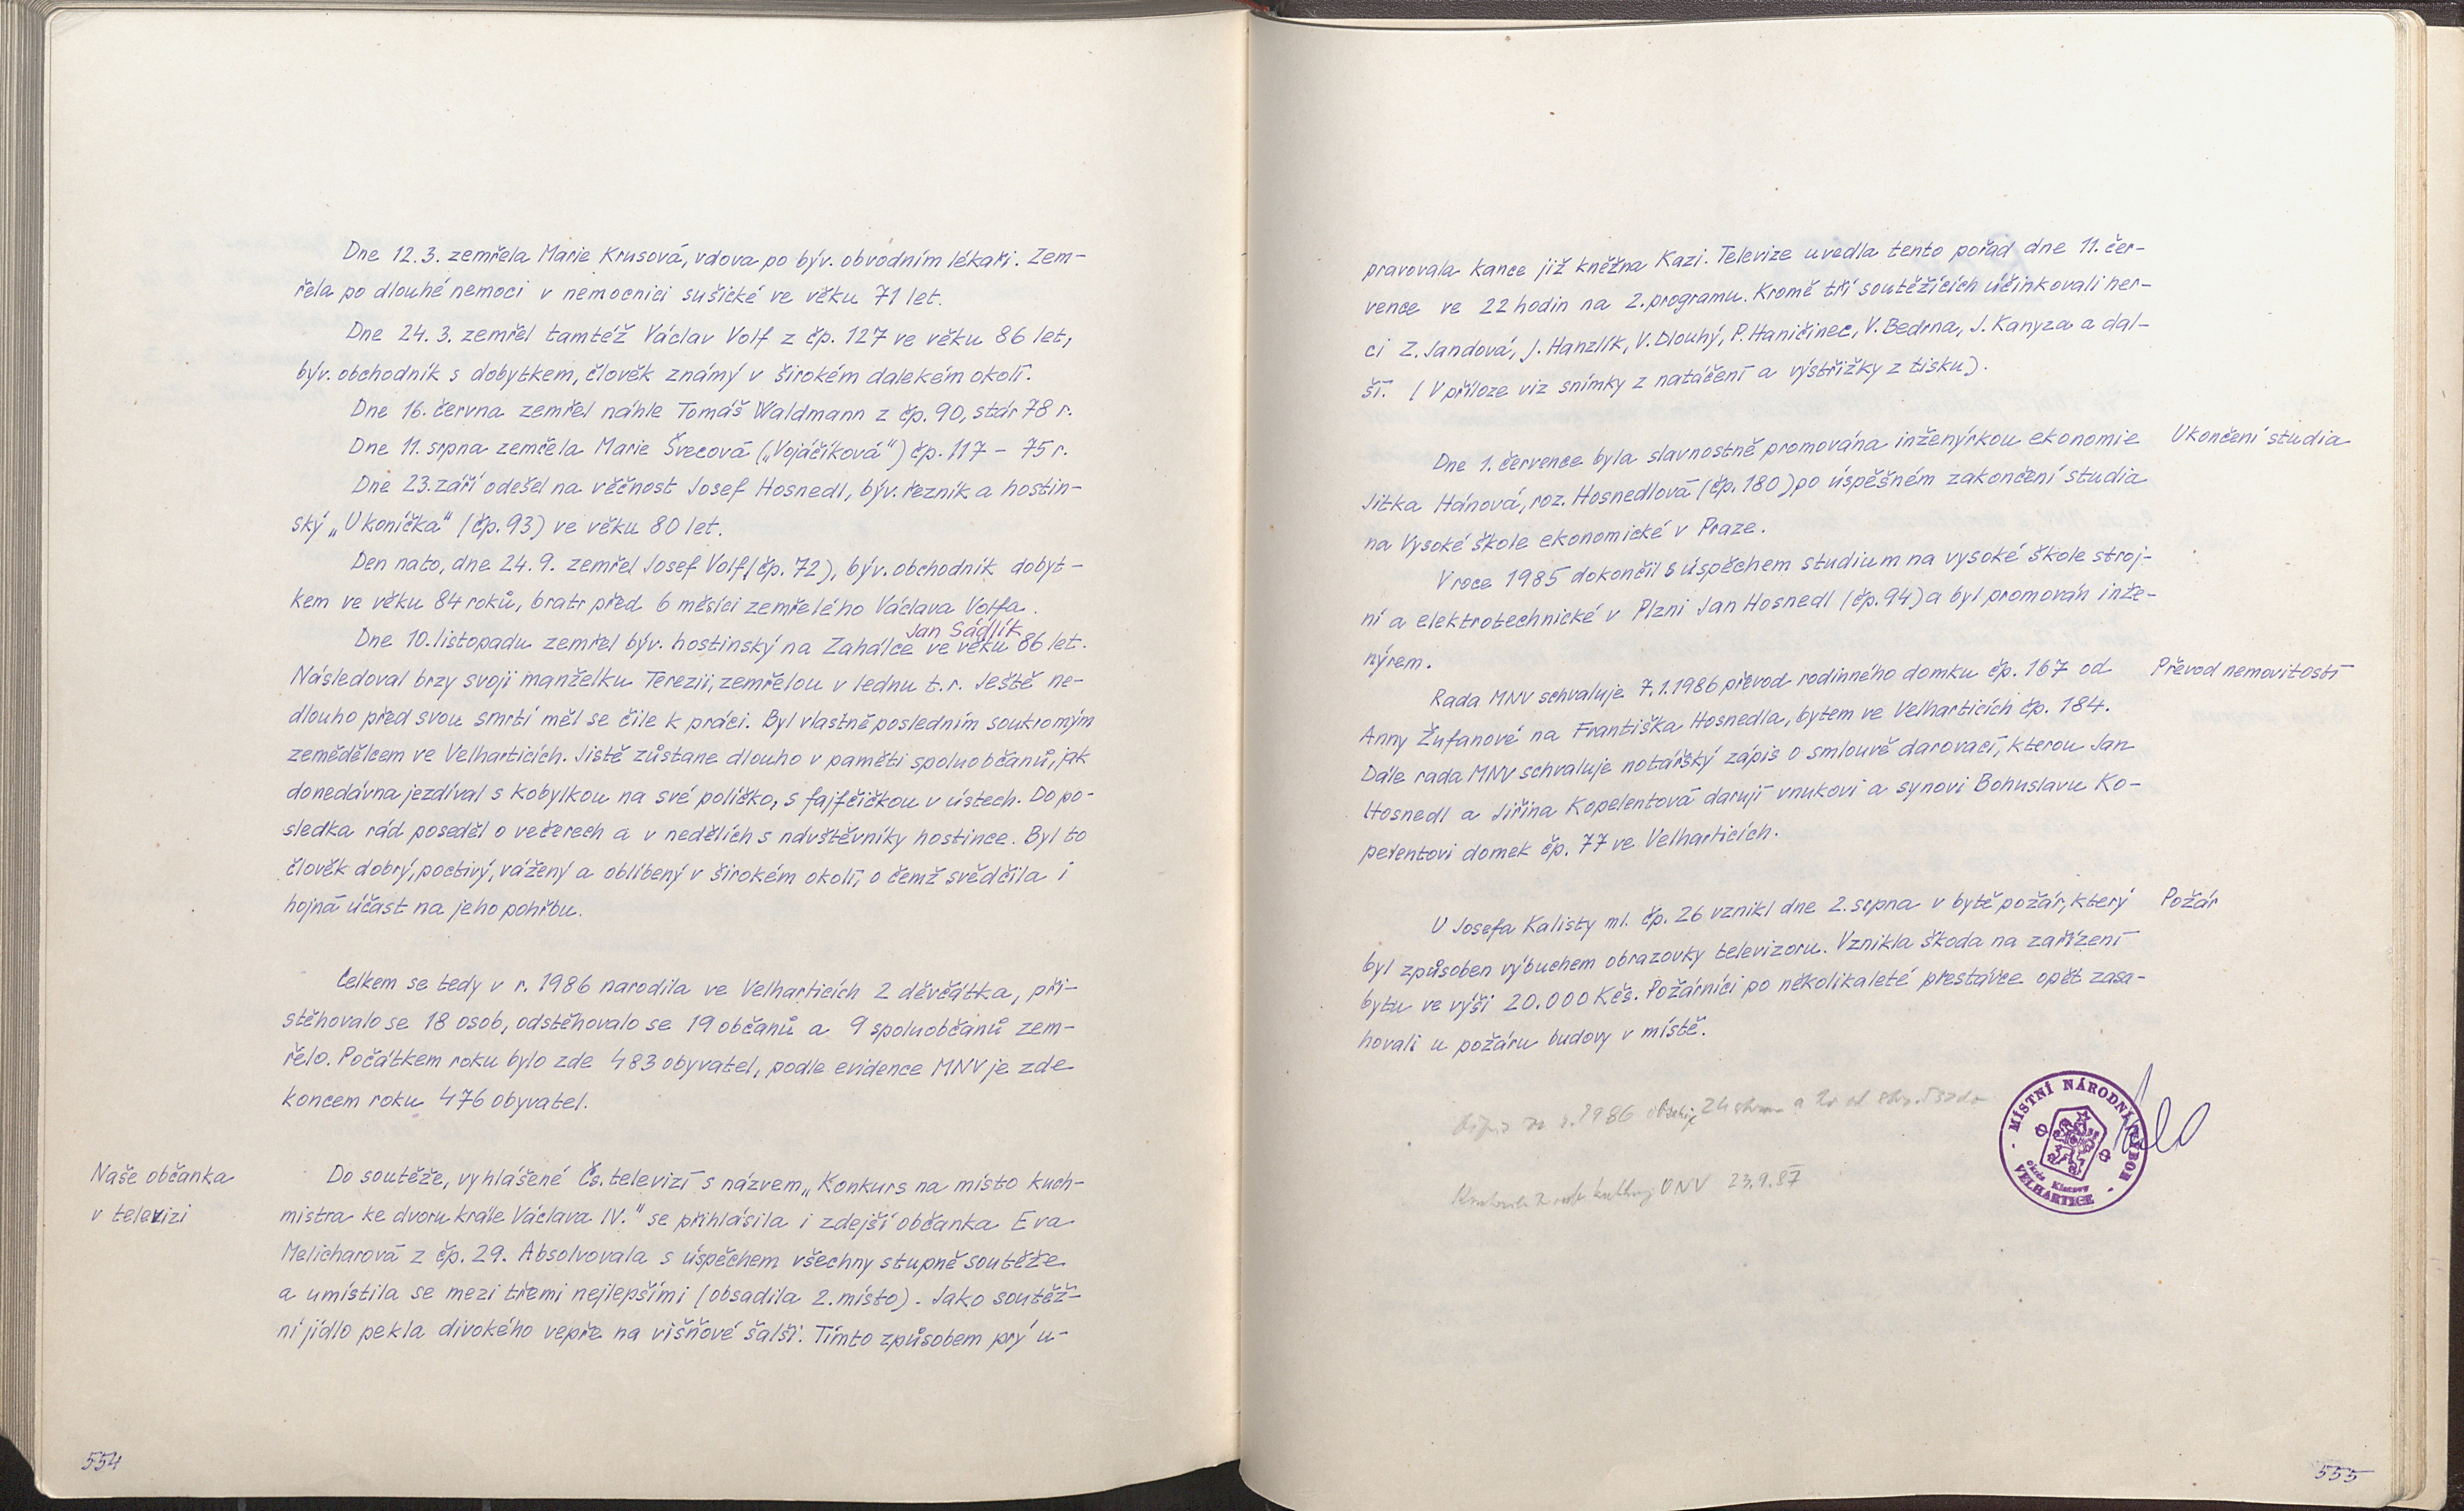 Dne 12.3. zemřela Marie Krusová, vdova po býv. obvodním lékaři. Zem-
řela po dlouhé nemoci v nemocnici sušické ve věku 71 let.
Dne 24.3. zemřel tamtéž Václav Volf z čp. 127 ve věku 86 let,
býv. obchodník s dobytkem, člověk známý v širokém dalekém okolí.
Dne 16. června zemřel náhle Tomáš Waldmann z čp. 90, stár 78 r.
Dne 11. srpna zemřela Marie Švecová („Vojáčíková“) čp. 117 - 75 r.
Dne 23. září odešel na věčnost Josef Hosnedl, býv. řezník a hostin-
ský „Ukonička“ (čp. 93) ve věku 80 let.
Den nato, dne 24.9. zemřel Josef Volf (čp. 72), býv. obchodník dobyt-
kem ve věku 84 roků, bratr před 6 měsíci zemřelého Václava Volfa.
Jan Sádlík
Dne 10. listopadu zemřel býv. hostinský na Zahálce ve věku 86 let.
Následoval brzy svoji manželku Terezii, zemřelou v lednu t.r. Ještě ne-
dlouho před svou smrtí měl se čile k práci. Byl vlastně posledním soukromým
zemědělcem ve Velharticích. Jistě zůstane dlouho v paměti spoluobčanů, jak
donedávna jezdíval s kobylkou na své políčko, s fajfčičkou v ústech. Do po-
sledka rád poseděl o večerech a v nedělích s návštěvníky hostince. Byl to
člověk dobrý, poctivý, vážený a oblíbený v širokém okolí, o čemž svědčila i
hojná účast na jeho pohřbu.
Celkem se tedy v r. 1986 narodila ve Velharticích 2 děvčátka, při-
stěhovalo se 18 osob, odstěhovalo se 19 občanů a 9 spoluobčanů zem-
řelo. Počátkem roku bylo zde 483 obyvatel, podle evidence MNV je zde
koncem roku 476 obyvatel.
Naše občanka
v televizi
Do soutěže, vyhlášené Čs. televizí s názvem „Konkurs na místo kuch-
mistra ke dvoru krále Václava IV.“ se přihlásila i zdejší občanka Eva
Melicharová z čp. 29. Absolvovala s úspěchem všechny stupně soutěže
a umístila se mezi třemi nejlepšími (obsadila 2. místo). Jako soutěž-
ní jídlo pekla divokého vepře na višňové šalši. Tímto způsobem prý u-
554
pravovala kance již kněžna Kazi. Televize uvedla tento pořad dne 11. čer-
vence ve 22 hodin na 2. programu. Kromě tří soutěžících účinkovali her-
ci Z. Jandová, J. Hanzlík, V. Dlouhý, P. Haničinec, V. Bedrna, J. Kanyza a dal-
ší. (V příloze viz snímky z natáčení a výstřižky z tisku).
Dne 1. července byla slavnostně promována inženýrkou ekonomie
Jitka Hánová, roz. Hosnedlová (čp. 180) po úspěšném zakončení studia
na Vysoké škole ekonomické v Praze.
Ukončení studia
V roce 1985 dokončil s úspěchem studium na vysoké škole stroj-
ní a elektrotechnické v Plzni Jan Hosnedl (čp. 94) a byl promován inže-
nýrem.
Rada MNV schvaluje 7.1.1986 převod rodinného domku čp. 167 od
Anny Žufanové na Františka Hosnedla, bytem ve Velharticích čp. 184.
Dále rada MNV schvaluje notářský zápis o smlouvě darovací, kterou Jan
Hosnedl a Jiřina Kopelentová darují vnukovi a synovi Bohuslavu Ko-
pelentovi domek čp. 77 ve Velharticích.
Převod nemovitostí
U Josefa Kalisty ml. čp. 26 vznikl dne 2. srpna v bytě požár, který
byl způsoben výbuchem obrazovky televizoru. Vznikla škoda na zařízení
bytu ve výši 20.000 Kčs. Požárníci po několikaleté přestávce opět zasa-
hovali u požáru budovy v místě.
Požár
Zápis za r. 1986 obsahuje 24 stran
ONV 23.9.87
MÍSTNÍ NÁRODNÍ VÝBOR
okres Klatovy
VELHARTICE
555